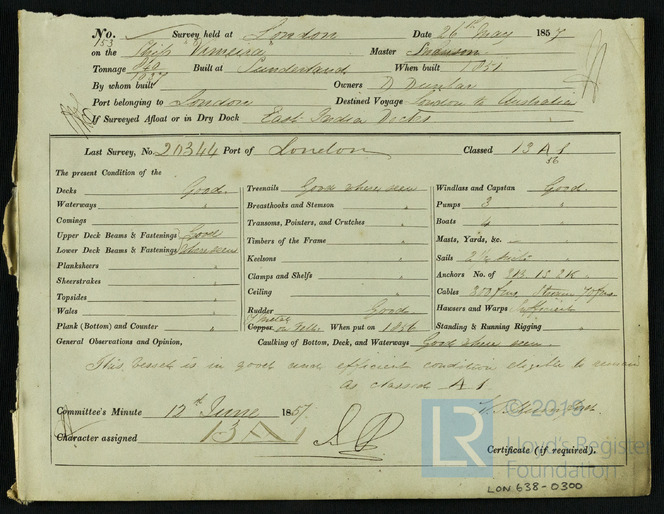 No. Survey held at London Date 26th May 1857
153
on the Ship Vimeira Master Swanson
Tonnage 970 Built at Sunderland When built 1851
1037
By whom built Owners D Dunbar
Port belonging to London Destined Voyage London to Australia
If Surveyed Afloat or in Dry Dock East India Docks
Last Survey, No. 20344 Port of London Classed 13 A 1
56
The present Condition of the
Decks Good
Waterways "
Comings "
Upper Deck Beams & Fastenings Good
Lower Deck Beams & Fastenings where seen
Planksheers "
Sheerstrakes "
Topsides "
Wales "
Plank (Bottom) and Counter "
Treenails Good where seen
Breasthooks and Stemson "
Transoms, Pointers, and Crutches "
Timbers of the Frame "
Keelsons "
Clamps and Shelfs "
Ceiling "
Rudder Good
Y Metal
Copper on Felt When put on 1856
Windlass and Capstan Good
Pumps 3 "
Boats 4 "
Masts, Yards, &c.
Sails 2
Anchors No. of 3B. 1S. 2K.
Cables 300 fms Stream 90 fms
Hawsers and Warps Sufficient
Standing & Running Rigging "
General Observations and Opinion, Caulking of Bottom, Deck, and Waterways Good where seen
This vessel is in good and efficient condition eligible to remain
as classed A 1
Committee's Minute 12th June 1857.
Character assigned 13 A 1
Certificate (if required).
© 2019
LR Lloyd's Register
Foundation
LON 638-0300